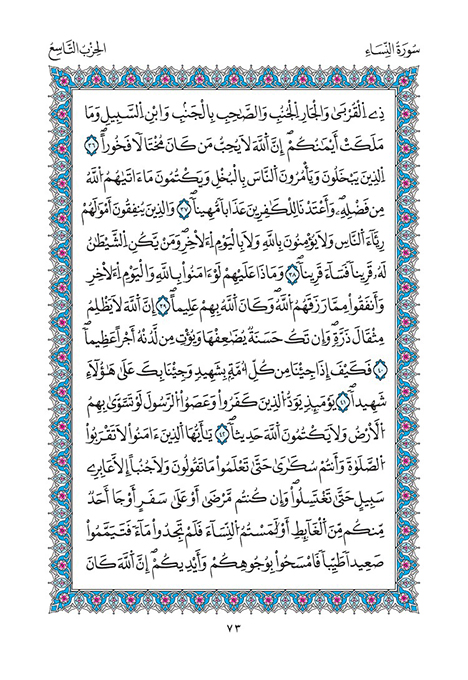 سُورَةُ النِّسَاءِ
الحِزْبُ التَّاسِعُ
ذِے اِ۬لْقُرْب۪يٰ وَالْجَارِ اِ۬لْجُنُبِ وَالصَّاحِبِ بِالْجَنۢبِ وَابْنِ اِ۬لسَّبِيلِ وَمَا
مَلَكَتَ اَيْمَٰنُكُمُۥٓ إِنَّ اَ۬للَّهَ لَا يُحِبُّ مَن كَانَ مُخْتَالاٗ فَخُوراً ٣٦
اِ۬لذِينَ يَبْخَلُونَ وَيَامُرُونَ اَ۬لنَّاسَ بِالْبُخْلِ وَيَكْتُمُونَ مَآ ءَات۪يٰهُمُ اُ۬للَّهُ
مِن فَضْلِهِۦ وَأَعْتَدْنَا لِلْكٰ۪فِرِينَ عَذَاباٗ مُّهِيناٗ ٣٧ وَالذِينَ يُنفِقُونَ أَمْوَٰلَهُمْ
رِئَآءَ اَ۬لنَّاسِ وَلَا يُومِنُونَ بِاللَّهِ وَلَا بِالْيَوْمِ اِ۬لَاخِرِ وَمَنْ يَّكُنِ اِ۬لشَّيْطَٰنُ
لَهُۥ قَرِيناٗ فَسَآءَ قَرِيناٗ ٣٨ وَمَاذَا عَلَيْهِمْ لَوَ اٰمَنُواْ بِاللَّهِ وَالْيَوْمِ اِ۬لَاخِرِ
وَأَنفَقُواْ مِمَّا رَزَقَهُمُ اُ۬للَّهُ وَكَانَ اَ۬للَّهُ بِهِمْ عَلِيماًۖ ٣٩ اِنَّ اَ۬للَّهَ لَا يَظْلِمُ
مِثْقَالَ ذَرَّةٖ وَإِن تَكُ حَسَنَةٞ يُضَٰعِفْهَا وَيُوتِ مِن لَّدُنْهُ أَجْراً عَظِيماٗ
٤٠ فَكَيْفَ إِذَا جِئْنَا مِن كُلِّ أُمَّةِۢ بِشَهِيدٖ وَجِئْنَا بِكَ عَلَىٰ هَٰٓؤُلَآءِ
شَهِيداٗ ٤١ يَوْمَئِذٖ يَوَدُّ اُ۬لذِينَ كَفَرُواْ وَعَصَوُاْ اُ۬لرَّسُولَ لَوْ تَسَّوّ۪يٰ بِهِمُ
اُ۬لَارْضُ وَلَا يَكْتُمُونَ اَ۬للَّهَ حَدِيثاٗ ٤٢ يَٰٓأَيُّهَا اَ۬لذِينَ ءَامَنُواْ لَا تَقْرَبُواْ
اُ۬لصَّلَوٰةَ وَأَنتُمْ سُكَٰر۪يٰ حَتَّىٰ تَعْلَمُواْ مَا تَقُولُونَ وَلَا جُنُباً اِلَّا عَابِرِے
سَبِيلٍ حَتَّىٰ تَغْتَسِلُواْ وَإِن كُنتُم مَّرْض۪يٰٓ أَوْ عَلَىٰ سَفَرٍ اَوْ جَآءَ اَحَدٞ
مِّنكُم مِّنَ اَ۬لْغَآئِطِ أَوْ لَٰمَسْتُمُ اُ۬لنِّسَآءَ فَلَمْ تَجِدُواْ مَآءٗ فَتَيَمَّمُواْ
صَعِيداٗ طَيِّباٗ فَامْسَحُواْ بِوُجُوهِكُمْ وَأَيْدِيكُمُۥٓ إِنَّ اَ۬للَّهَ كَانَ
٧٣